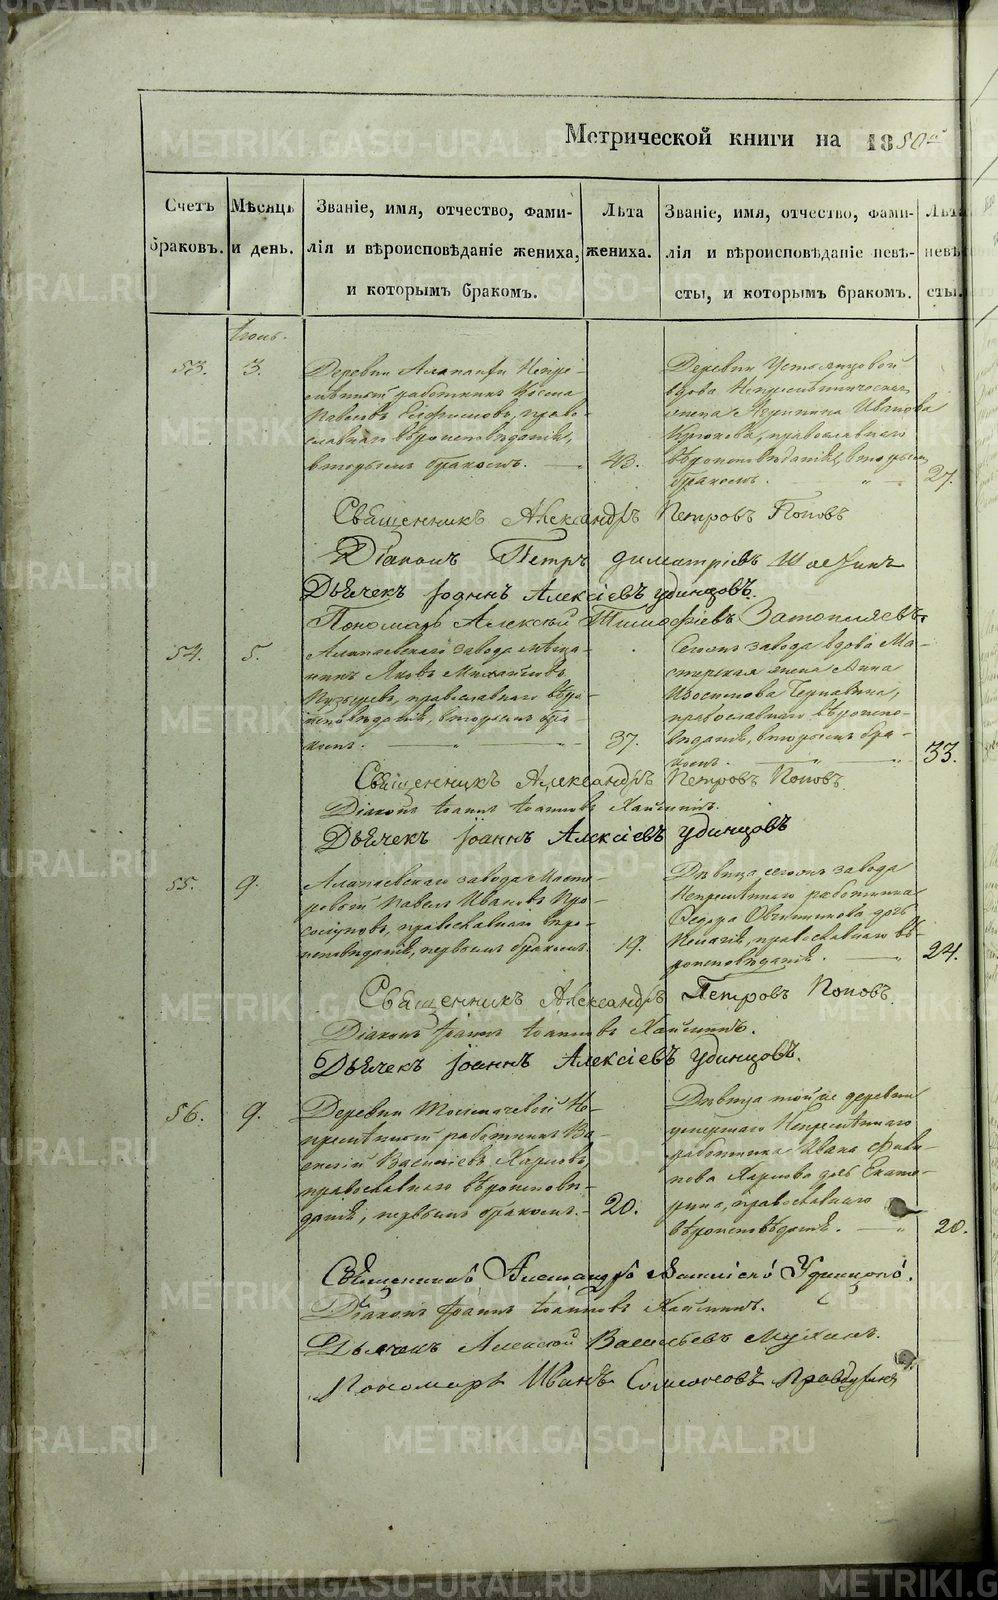 METRIKI.GASO-URAL.RU
Метрической книги на 1850й
Счетъ браковъ.
Мѣсяцъ и день.
Званіе, имя, отчество, фами-
лія и вѣроисповѣданіе жениха,
и которымъ бракомъ.
Лѣта
жениха.
Званіе, имя, отчество, фами-
лія и вѣроисповѣданіе невѣ-
сты, и которымъ бракомъ.
Лѣта
невѣ
сты.
53.
3.
Деревни Алапаихи Непре-
мѣнный работникъ Косма
Павловъ право-
славнаго вѣроисповѣданія,
вторымъ бракомъ.
43.
Деревни Устьянцовой
вдова Непремѣнническая
жена Агрипина Иванова
Крюкова, православнаго
вѣроисповѣданія, вторымъ
бракомъ.
27.
Священникъ Александръ Петровъ Поповъ
Діаконъ Петръ Димитріевъ
Дьячекъ Іоаннъ Алексіевъ Удинцовъ.
Пономарь Алексій Тимофіевъ
54.
5.
Алапаевскаго завода мѣща-
нинъ Яковъ Михайловъ
православнаго вѣро-
исповѣданія, вторымъ бра-
комъ.
37.
Сегожъ завода вдова Ма-
стерская жена Анна
православнаго вѣроиспо-
вѣданія, вторымъ бра-
комъ.
33.
Священникъ Александръ Петровъ Поповъ.
Діаконъ Іоаннъ Іоанновъ
Дьячекъ Іоаннъ Алексіевъ Удинцовъ
55.
9.
Алапаевскаго завода Масте-
ровый Павелъ Ивановъ Про-
православнаго вѣро-
исповѣданія, первымъ бракомъ.
19.
Дѣвица сегожъ завода
Непремѣннаго работника
Федора Овчинникова дочь
Пелагія, православнаго вѣ-
роисповѣданія.
24.
Священникъ Александръ Петровъ Поповъ.
Діаконъ Іоаннъ Іоанновъ
Дьячекъ Іоаннъ Алексіевъ Удинцовъ.
56.
9.
Деревни Толмачевой Не-
премѣнный работникъ Ва-
силій Василіевъ Харловъ,
православнаго вѣроисповѣ-
данія, первымъ бракомъ.
20.
Дѣвица той же деревни
умершаго Непремѣннаго
работника Ивана Фили-
пова Харлова дочь Екате-
рина, православнаго
вѣроисповѣданія.
20.
Священникъ Александръ Удинцовъ.
Діаконъ Іоаннъ Іоанновъ
Дьячекъ Алексій Васильевъ Мухинъ.
Пономарь Иванъ Симеоновъ